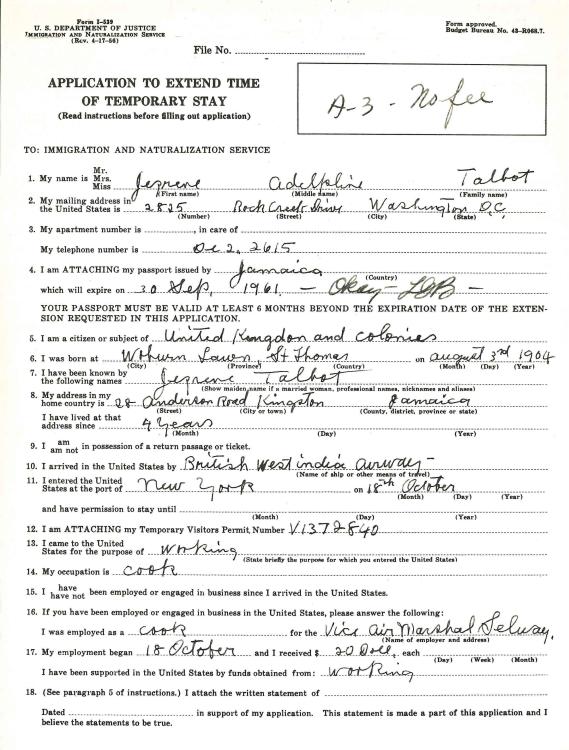 Form I-539
U. S. DEPARTMENT OF JUSTICE
IMMIGRATION AND NATURALIZATION SERVICE
(Rev. 4-17-56)
Form approved.
Budget Bureau No. 43-R068.7.
File No.
APPLICATION TO EXTEND TIME
OF TEMPORARY STAY
(Read instructions before filling out application)
A-3 - No fee
TO: IMMIGRATION AND NATURALIZATION SERVICE
Mr.
1. My name is Mrs. Jeprene Adelphine Talbot
Miss (First name) (Middle name) (Family name)
2. My mailing address in
the United States is 2825 Rock Creek Drive Washington D.C.
(Number) (Street) (City) (State)
3. My apartment number is , in care of
My telephone number is De 2. 2615
4. I am ATTACHING my passport issued by Jamaica
(Country)
which will expire on 30 Sep, 1961 - Okay -
YOUR PASSPORT MUST BE VALID AT LEAST 6 MONTHS BEYOND THE EXPIRATION DATE OF THE EXTEN-
SION REQUESTED IN THIS APPLICATION.
5. I am a citizen or subject of United Kingdon and colonies
6. I was born at Woburn Lawn, St Thomas on august 3rd 1904
(City) (Province) (Country) (Month) (Day) (Year)
7. I have been known by
the following names Jeprene Talbot
(Show maiden name if a married woman, professional names, nicknames and aliases)
8. My address in my
home country is 28 Anderson Road Kingston Jamaica
(Street) (City or town) (County, district, province or state)
I have lived at that
address since 4 years
(Month) (Day) (Year)
9. I am
am not in possession of a return passage or ticket.
10. I arrived in the United States by British West india airway-
(Name of ship or other means of travel)
11. I entered the United
States at the port of New York on 18th October
(Month) (Day) (Year)
and have permission to stay until
(Month) (Day) (Year)
12. I am ATTACHING my Temporary Visitors Permit, Number V1372840
13. I came to the United
States for the purpose of working
(State briefly the purpose for which you entered the United States)
14. My occupation is cook
15. I have
have not been employed or engaged in business since I arrived in the United States.
16. If you have been employed or engaged in business in the United States, please answer the following:
I was employed as a cook for the Vice Air Marshal Selway,
(Name of employer and address)
17. My employment began 18 October and I received $ 20 Doll, each
(Day) (Week) (Month)
I have been supported in the United States by funds obtained from: working
18. (See paragraph 5 of instructions.) I attach the written statement of
Dated in support of my application. This statement is made a part of this application and I
believe the statements to be true.